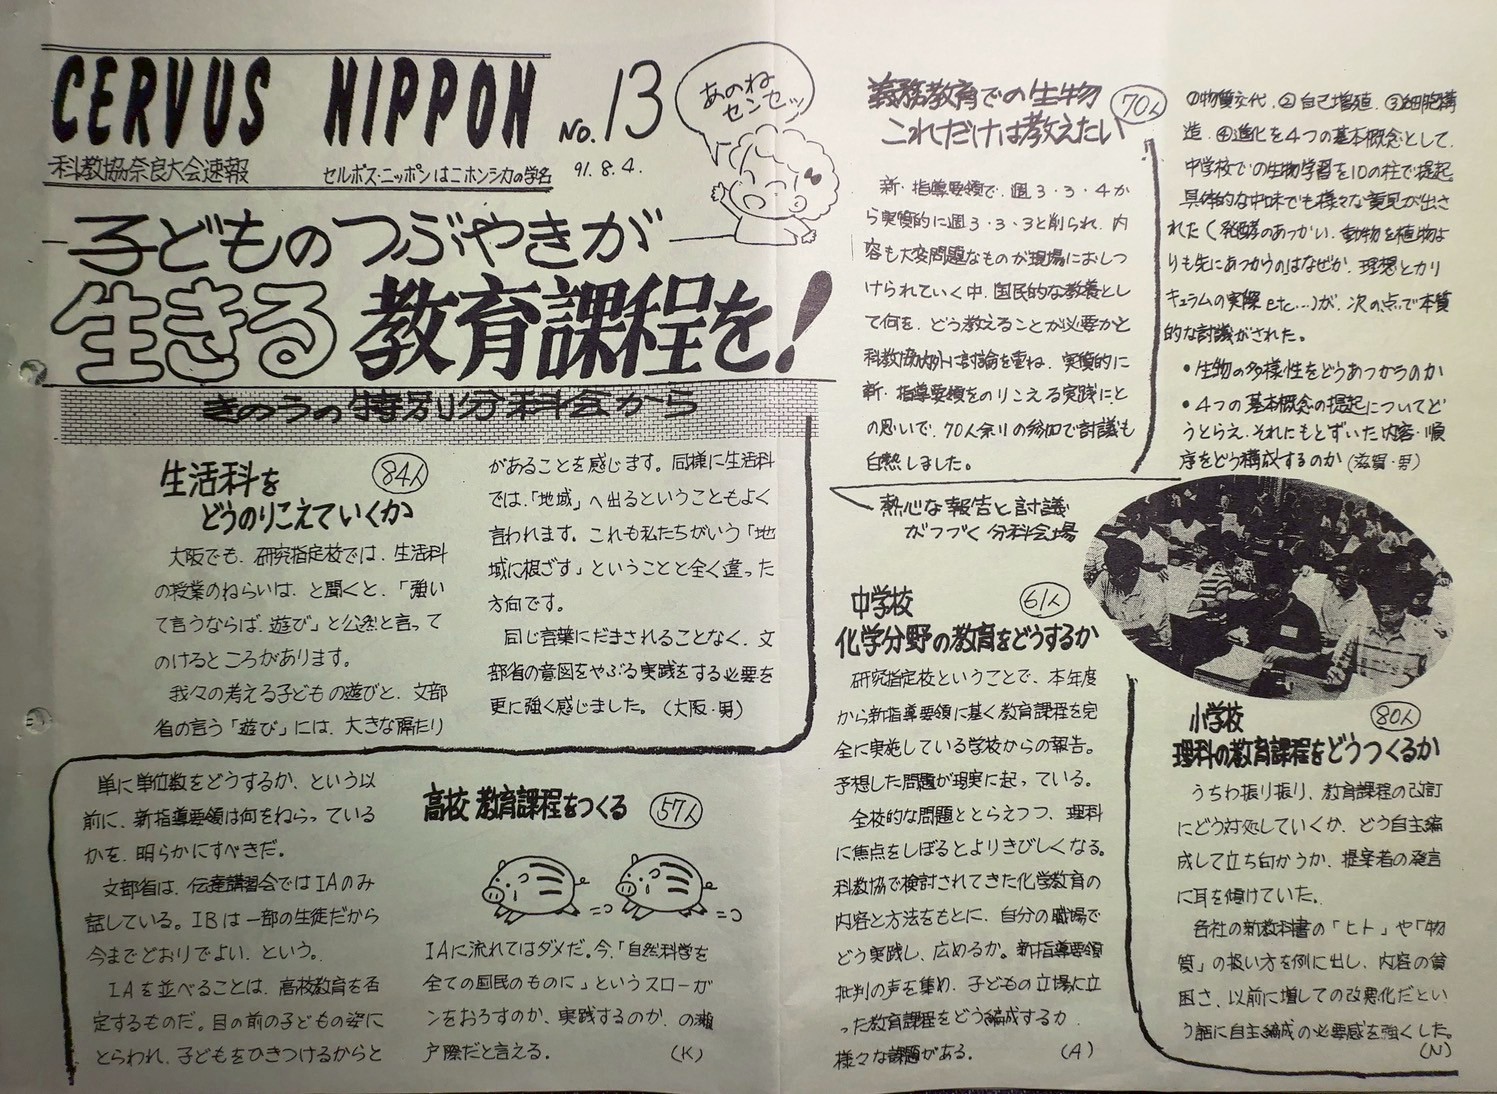 CERVUS NIPPON No.13
科教協奈良大会速報
セルボス・ニッポンはニホンジカの学名
91.8.4.
あのね
センセッ
子どものつぶやきが
生きる教育課程を!
きのうの特別分科会から
生活科を
どうのりこえていくか
84人
大阪でも、研究指定校では、生活科
の授業のねらいは、と聞くと、「強い
て言うならば、遊び」と公然と言って
のけるところがあります。
我々の考える子どもの遊びと、文部
省の言う「遊び」には、大きな隔たり
があることを感じます。同様に生活科
では、「地域」へ出るということもよく
言われます。これも私たちがいう「地
域に根ざす」ということと全く違った
方向です。
同じ言葉にだまされることなく、文
部省の意図をやぶる実践をする必要を
更に強く感じました。(大阪・男)
高校 教育課程をつくる
57人
単に単位数をどうするか、という以
前に、新指導要領は何をねらっている
かを、明らかにすべきだ。
文部省は、伝達講習会ではIAのみ
話している。IBは一部の生徒だから
今までどおりでよい、という。
IAを並べることは、高校教育を否
定するものだ。目の前の子どもの姿に
とらわれ、子どもをひきつけるからと
IAに流れてはダメだ。今、「自然科学を
全ての国民のものに」というスローガ
ンをおろすのか、実践するのか、の瀬
戸際だと言える。 (K)
義務教育での生物
これだけは教えたい
70人
新・指導要領で、週3・3・4か
ら実質的に週3・3・3と削られ、内
容も大変問題なものが現場におしつ
けられていく中、国民的な教養とし
て何を、どう教えることが必要かと
科教協内外に討論を重ね、実質的に
新・指導要領をのりこえる実践にと
の思いで、70人余りの参加で討議も
白熱しました。
①物質交代、②自己増殖、③細胞構
造、④進化を4つの基本概念として、
中学校での生物学習を10の柱で提起。
具体的な中味でも様々な意見が出さ
れた(発酵のあつかい、動物を植物よ
りも先にあつかうのはなぜか、理想とカリ
キュラムの実際etc…)が、次の点で本質
的な討議がされた。
・生物の多様性をどうあつかうのか
・4つの基本概念の提起についてど
うとらえ、それにもとずいた内容・順
序をどう構成するのか(滋賀・男)
熱心な報告と討議
がつづく分科会場
中学校
61人
化学分野の教育をどうするか
研究指定校ということで、本年度
から新指導要領に基く教育課程を完
全に実施している学校からの報告。
予想した問題が現実に起っている。
全校的な問題ととらえつつ、理科
に焦点をしぼるとよりきびしくなる。
科教協で検討されてきた化学教育の
内容と方法をもとに、自分の職場で
どう実践し、広めるか。新指導要領
批判の声を集め、子どもの立場に立
った教育課程をどう編成するか
様々な課題がある。 (A)
小学校
80人
理科の教育課程をどうつくるか
うちわ振り振り、教育課程の改訂
にどう対処していくか、どう自主編
成して立ち向かうか、提案者の発言
に耳を傾けていた。
各社の新教科書の「ヒト」や「物
質」の扱い方を例に出し、内容の貧
困さ、以前に増しての改悪化だとい
う話に自主編成の必要感を強くした。
(N)